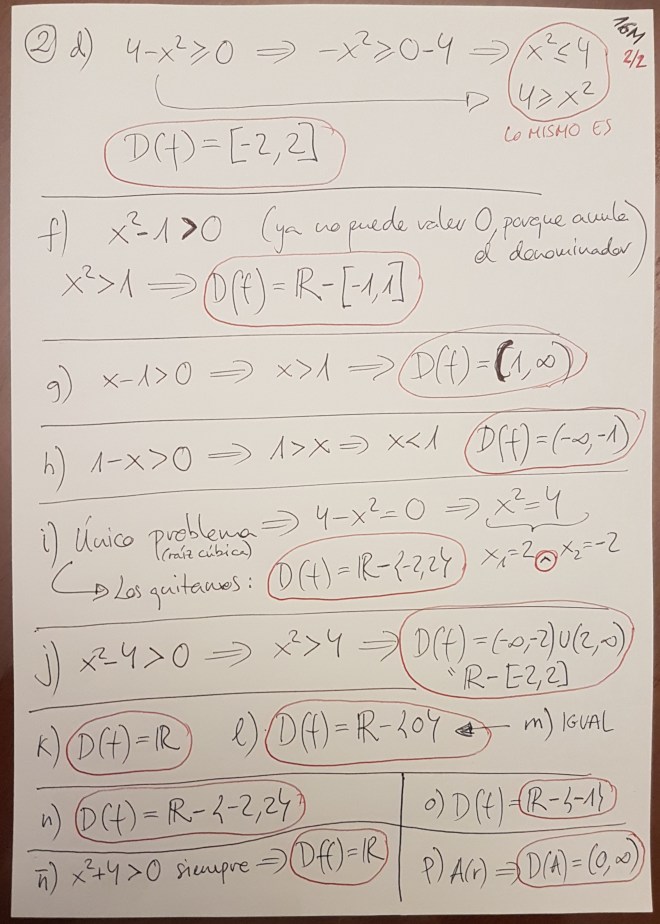 16M
2/2
② d) 4-x²≥0 ⟹ -x²≥0-4 ⟹ x²≤4
4≥x²
LO MISMO ES
D(f)=[-2,2]
f) x²-1>0 (ya no puede valer 0, porque anula
el denominador)
x²>1 ⟹ D(f)=ℝ-[-1,1]
g) x-1>0 ⟹ x>1 ⟹ D(f)=(1,∞)
h) 1-x>0 ⟹ 1>x ⟹ x<1 D(f)=(-∞,-1)
i) Único problema ⟹ 4-x²=0 ⟹ x²=4
(raíz cúbica)
x₁=2 ∧ x₂=-2
Los quitamos: D(f)=ℝ-{-2,2}
j) x²-4>0 ⟹ x²>4 ⟹ D(f)=(-∞,-2)∪(2,∞)
" ℝ-[-2,2]
k) D(f)=ℝ l) D(f)=ℝ-{0} ← m) IGUAL
n) D(f)=ℝ-{-2,2}
o) D(f)=ℝ-{-1}
ñ) x²+4>0 siempre ⟹ D(f)=ℝ
p) A(r) ⟹ D(A)=(0,∞)